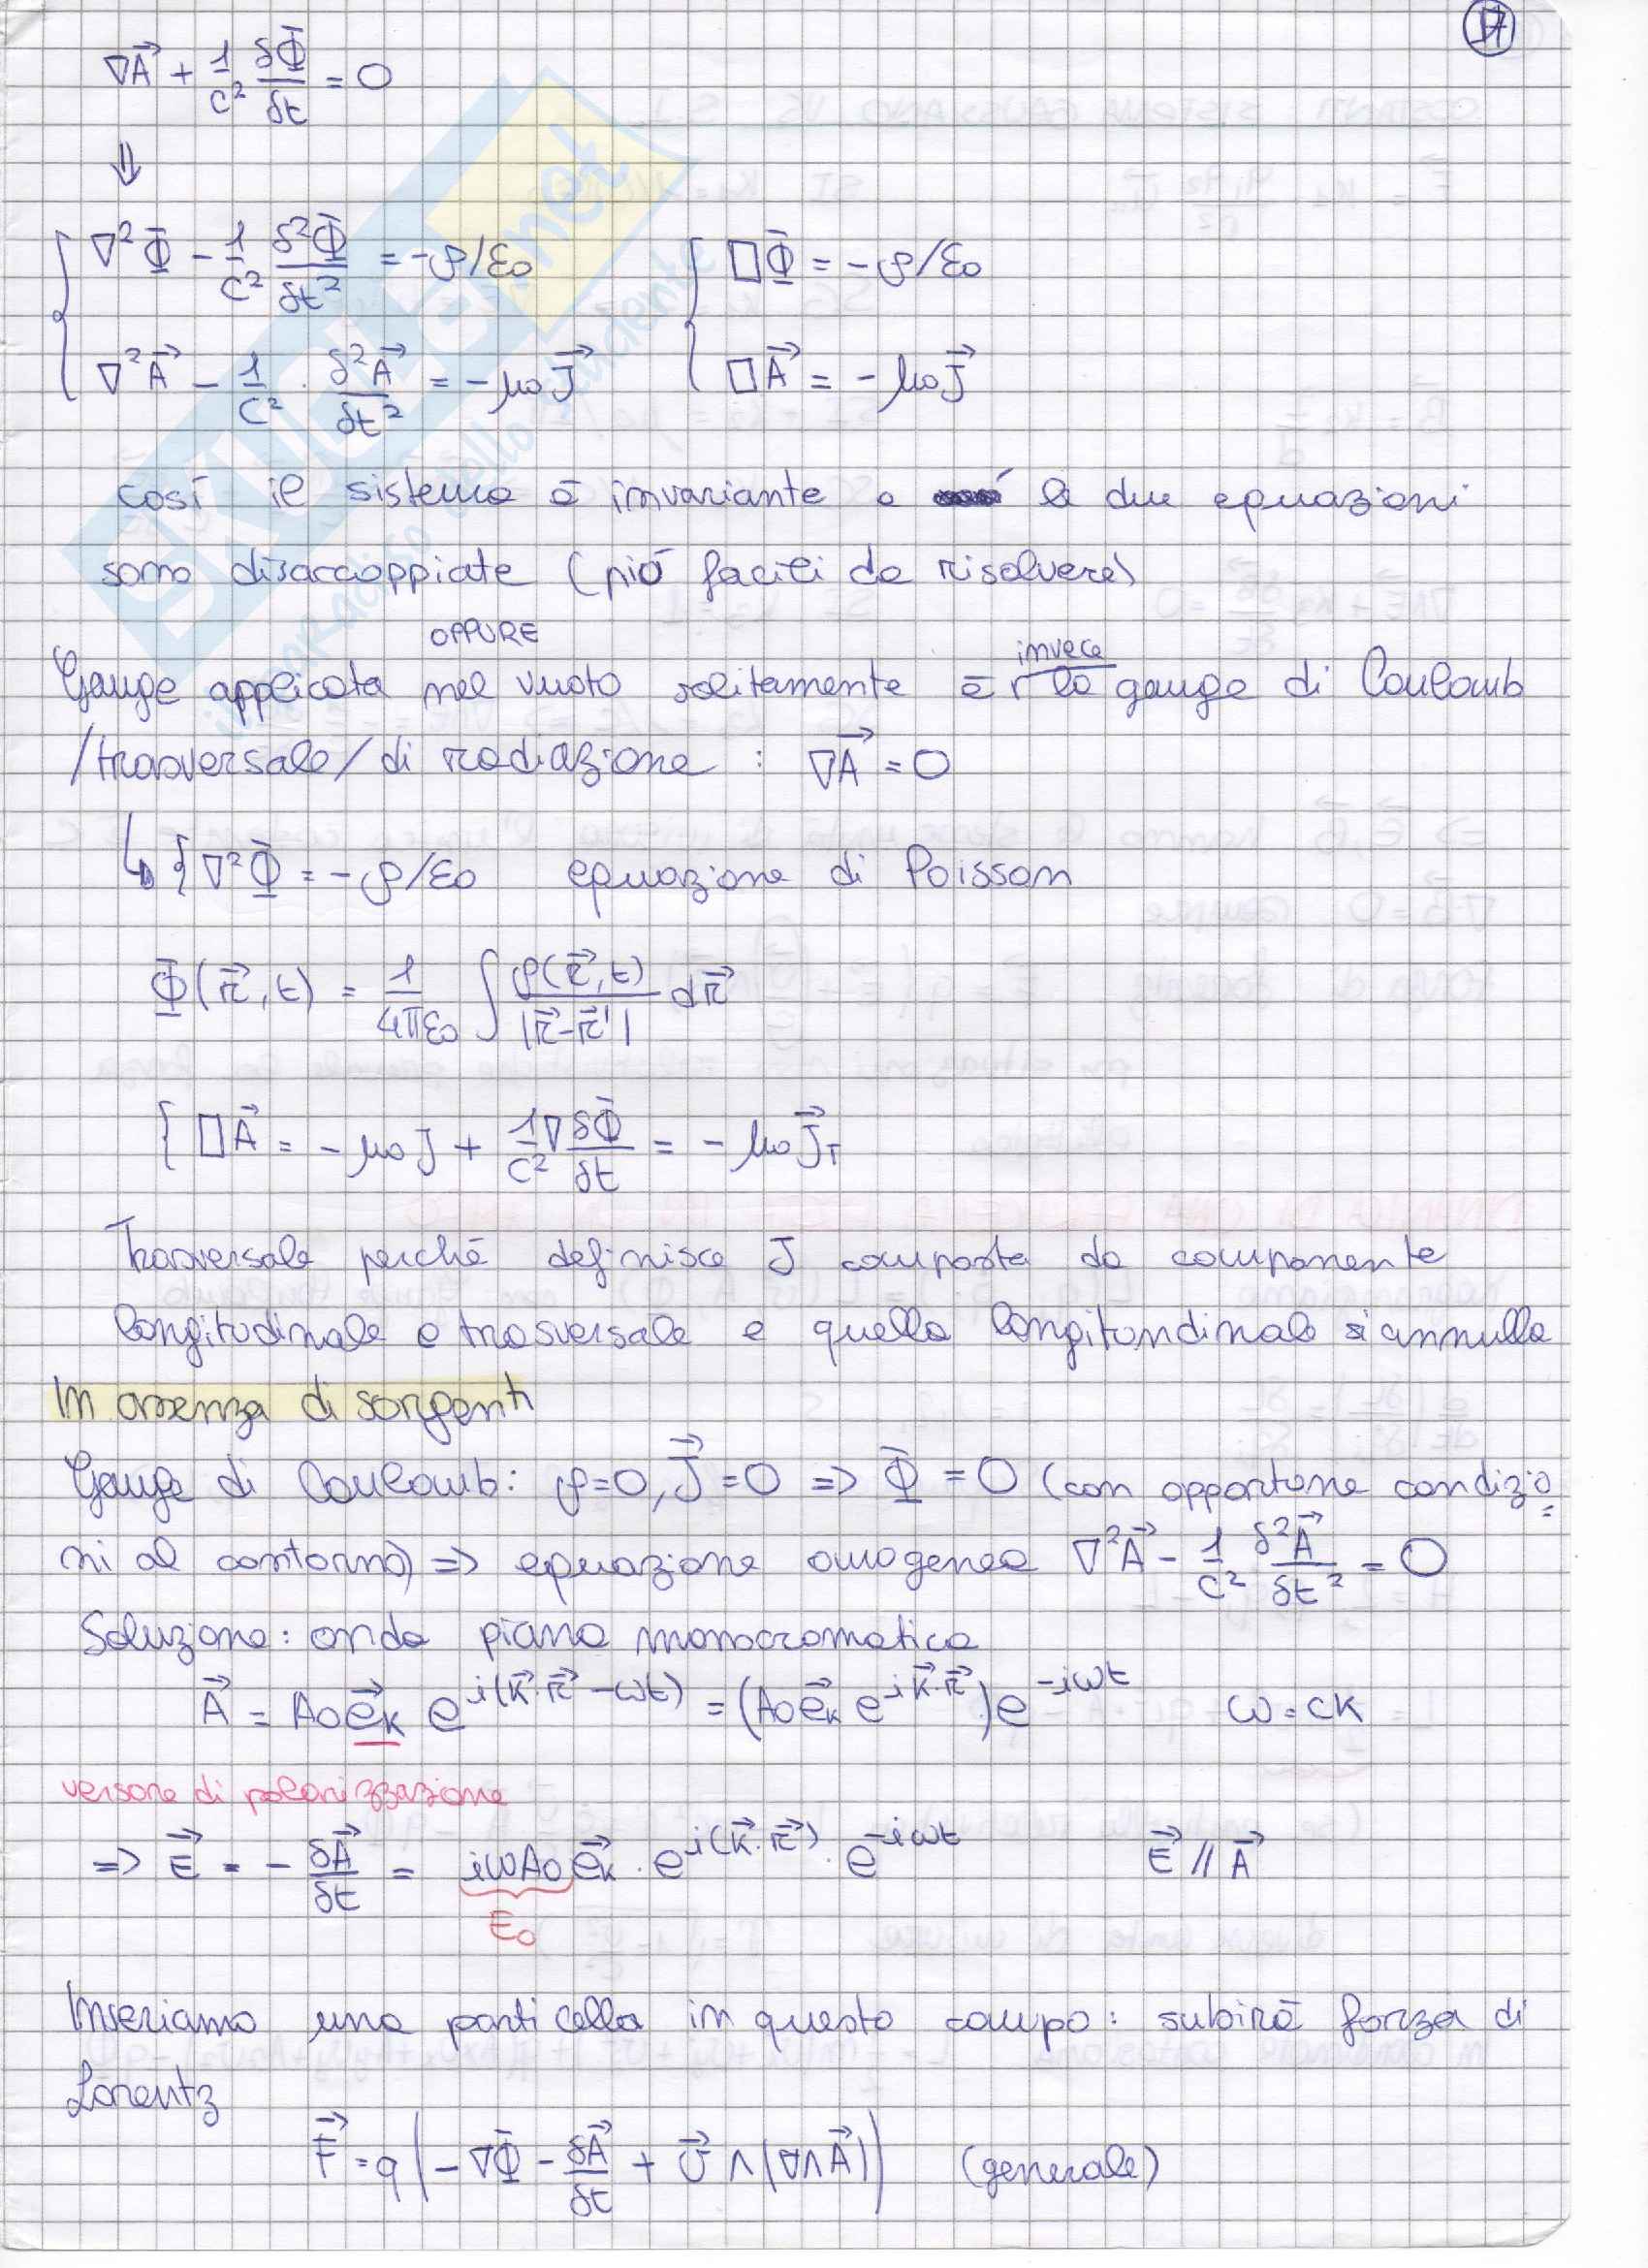 17
∇A⃗ + 1/c² δΦ/δt = 0
⇓
{ ∇²Φ − 1/c² δ²Φ/δt² = −ρ/ε₀ { □Φ = −ρ/ε₀
∇²A⃗ − 1/c² · δ²A⃗/δt² = −μ₀J⃗ □A⃗ = −μ₀J⃗
così il sistema è invariante e le due equazioni
sono disaccoppiate (più facili da risolvere)
OPPURE invece
Gauge applicata nel vuoto solitamente è la gauge di Coulomb
/trasversale/di radiazione : ∇A⃗ = 0
↳ { ∇²Φ = −ρ/ε₀ equazione di Poisson
Φ(r⃗,t) = 1/4πε₀ ∫ ρ(r⃗,t)/|r⃗−r⃗'| dr⃗
{ □A⃗ = −μ₀J + 1/c² ∇ δΦ/δt = −μ₀J⃗T
Trasversale perché definisce J composta da componente
longitudinale e trasversale e quella longitundinale si annulla
In assenza di sorgenti
Gauge di Coulomb: ρ=0, J⃗=0 => Φ = 0 (con opportune condizio
ni al contorno) => equazione omogenea ∇²A⃗ − 1/c² δ²A⃗/δt² = 0
Soluzione: onda piana monocromatica
A⃗ = A₀e⃗ₖ e^i(k⃗·r⃗−ωt) = (A₀e⃗ₖ e^ik⃗·r⃗) e^−iωt ω=ck
versore di polarizzazione
=> E⃗ = − δA⃗/δt = iωA₀e⃗ₖ · e^i(k⃗·r⃗) · e^−iωt E⃗ // A⃗
E₀
Inseriamo una particella in questo campo: subirà forza di
Lorentz
F⃗ = q(−∇Φ − δA⃗/δt + v⃗ ∧ (∇∧A⃗)) (generale)
SKUOLA.net
il paradiso dello studente